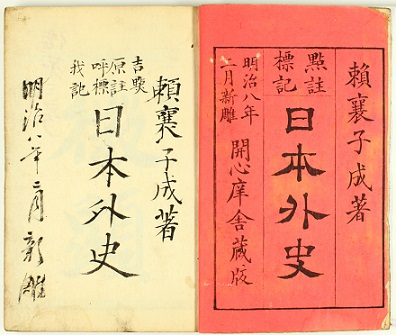 賴襄子成著
點註
標記
日本外史
明治八年
二月新雕
開心庠舍藏版
賴襄子成著
原註
標
記
日本外史
明治八年二月新雕